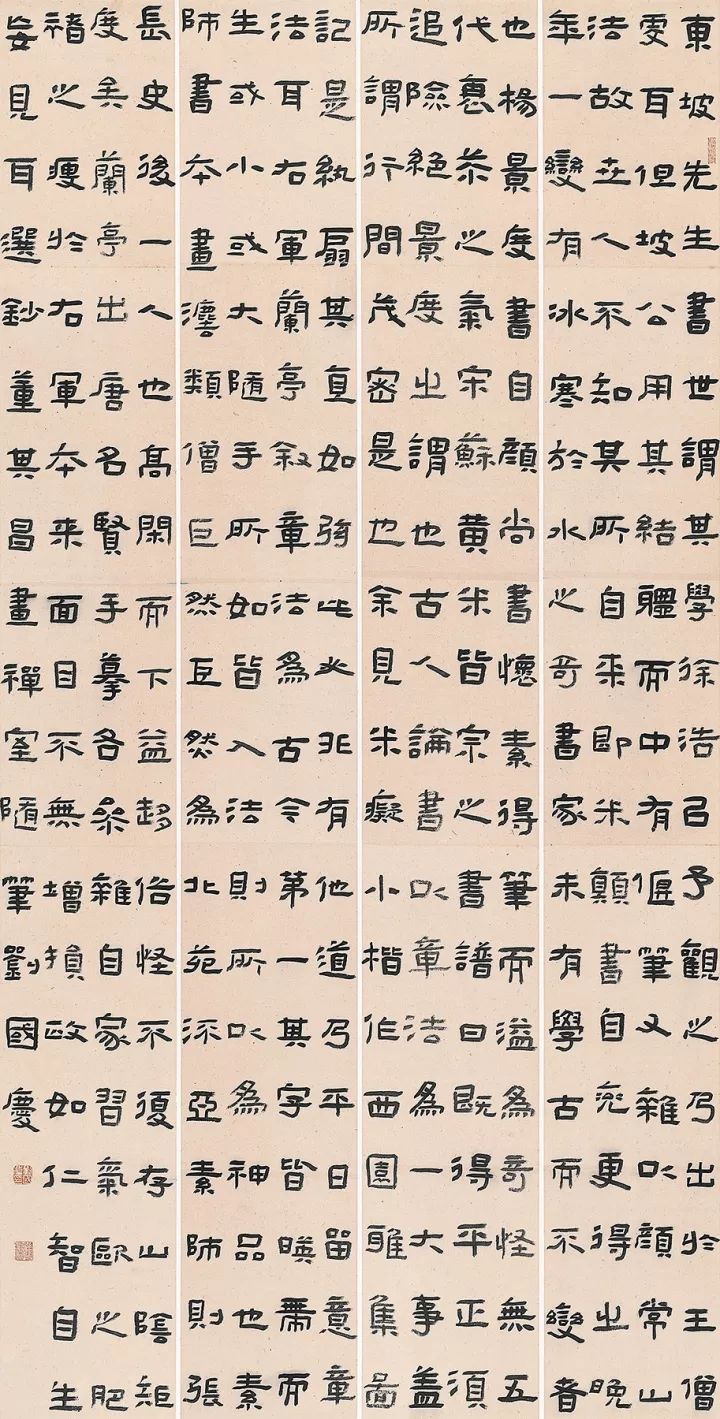 東坡先生書世謂其學徐浩㠯予觀之乃出於王僧
虔耳但坡公用其結體而中有偃筆又雜以顏常山
法故世人不知其所自来即米顛書自兖更得之晚
年一變有冰寒於水之奇書家未有學古而不變者
也楊景度書自顏尚書懷素得筆而溢為奇怪無五
代衰恭之氣宋蘇黃米皆宗之書譜曰既得平正須
追險絕景度之謂也古人論書以章法為一大事蓋
所謂行間茂密是也余見米癡小楷作西園雅集圖
記是紈扇其直如弦此必非有他道乃平日留意章
法耳右軍蘭亭敘章法為古今第一其字皆暎帶而
生或小或大隨手所如皆入法則所以為神品也素
師書本畫法類僧巨然巨然為北苑流亞素師則張
長史後一人也高閑而下益趍俗怪不復存山陰矩
度矣蘭亭出唐名賢手摹各參雜自家習氣歐之肥
褚之瘦於右軍本来面目不無增損政如仁智自生
妄見耳選鈔董其昌畫禪室隨筆劉國慶